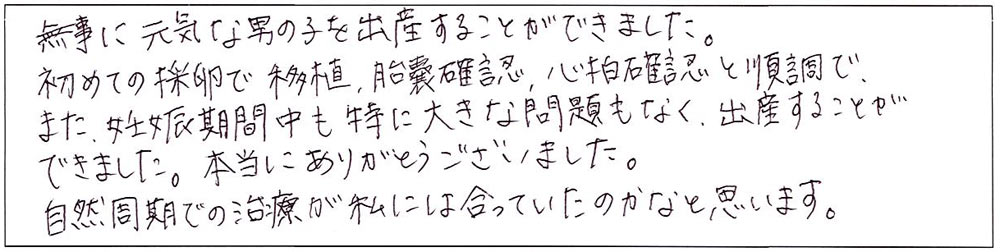 無事に元気な男の子を出産することができました。
初めての採卵で移植、胎嚢確認、心拍確認と順調で、
また、妊娠期間中も特に大きな問題もなく、出産することが
できました。本当にありがとうございました。
自然周期での治療が私には合っていたのかなと思います。